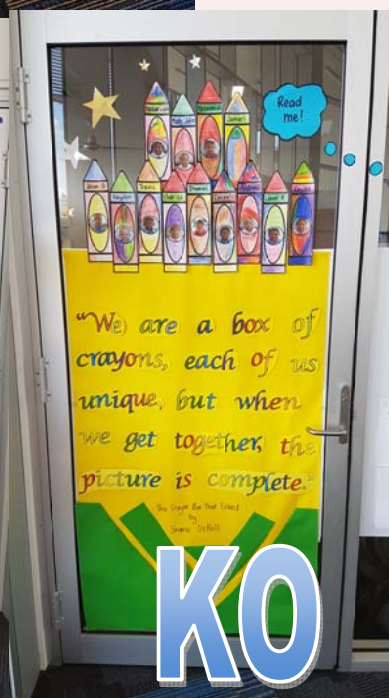 Read
me!
"We are a box of
crayons, each of us
unique, but when
we get together, the
picture is complete."
The Crayon Box That Talked
by
Shane DeRolf
KO